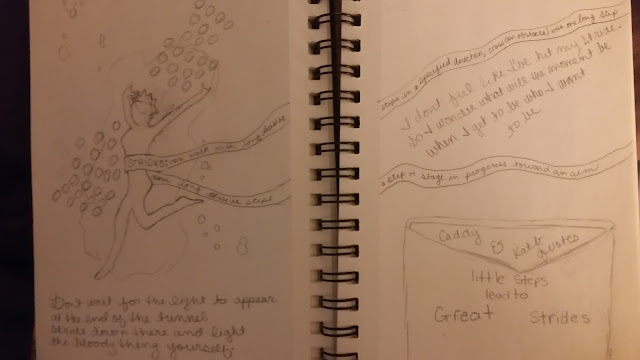 STRIDES: walk with long decisive
steps
Dont wait for the light to appear
at the end of the tunnel
Stride down there and light
the bloody thing yourself.
steps in a specified direction, cross (an obstacle) with one long step
I dont feel like I've hit my stride.
So I wonder what will the moment be
when I get to be who I want
to be
a step or stage in progress toward an aim
Caddy & Kalb
Quotes
little steps
lead to
Great Strides